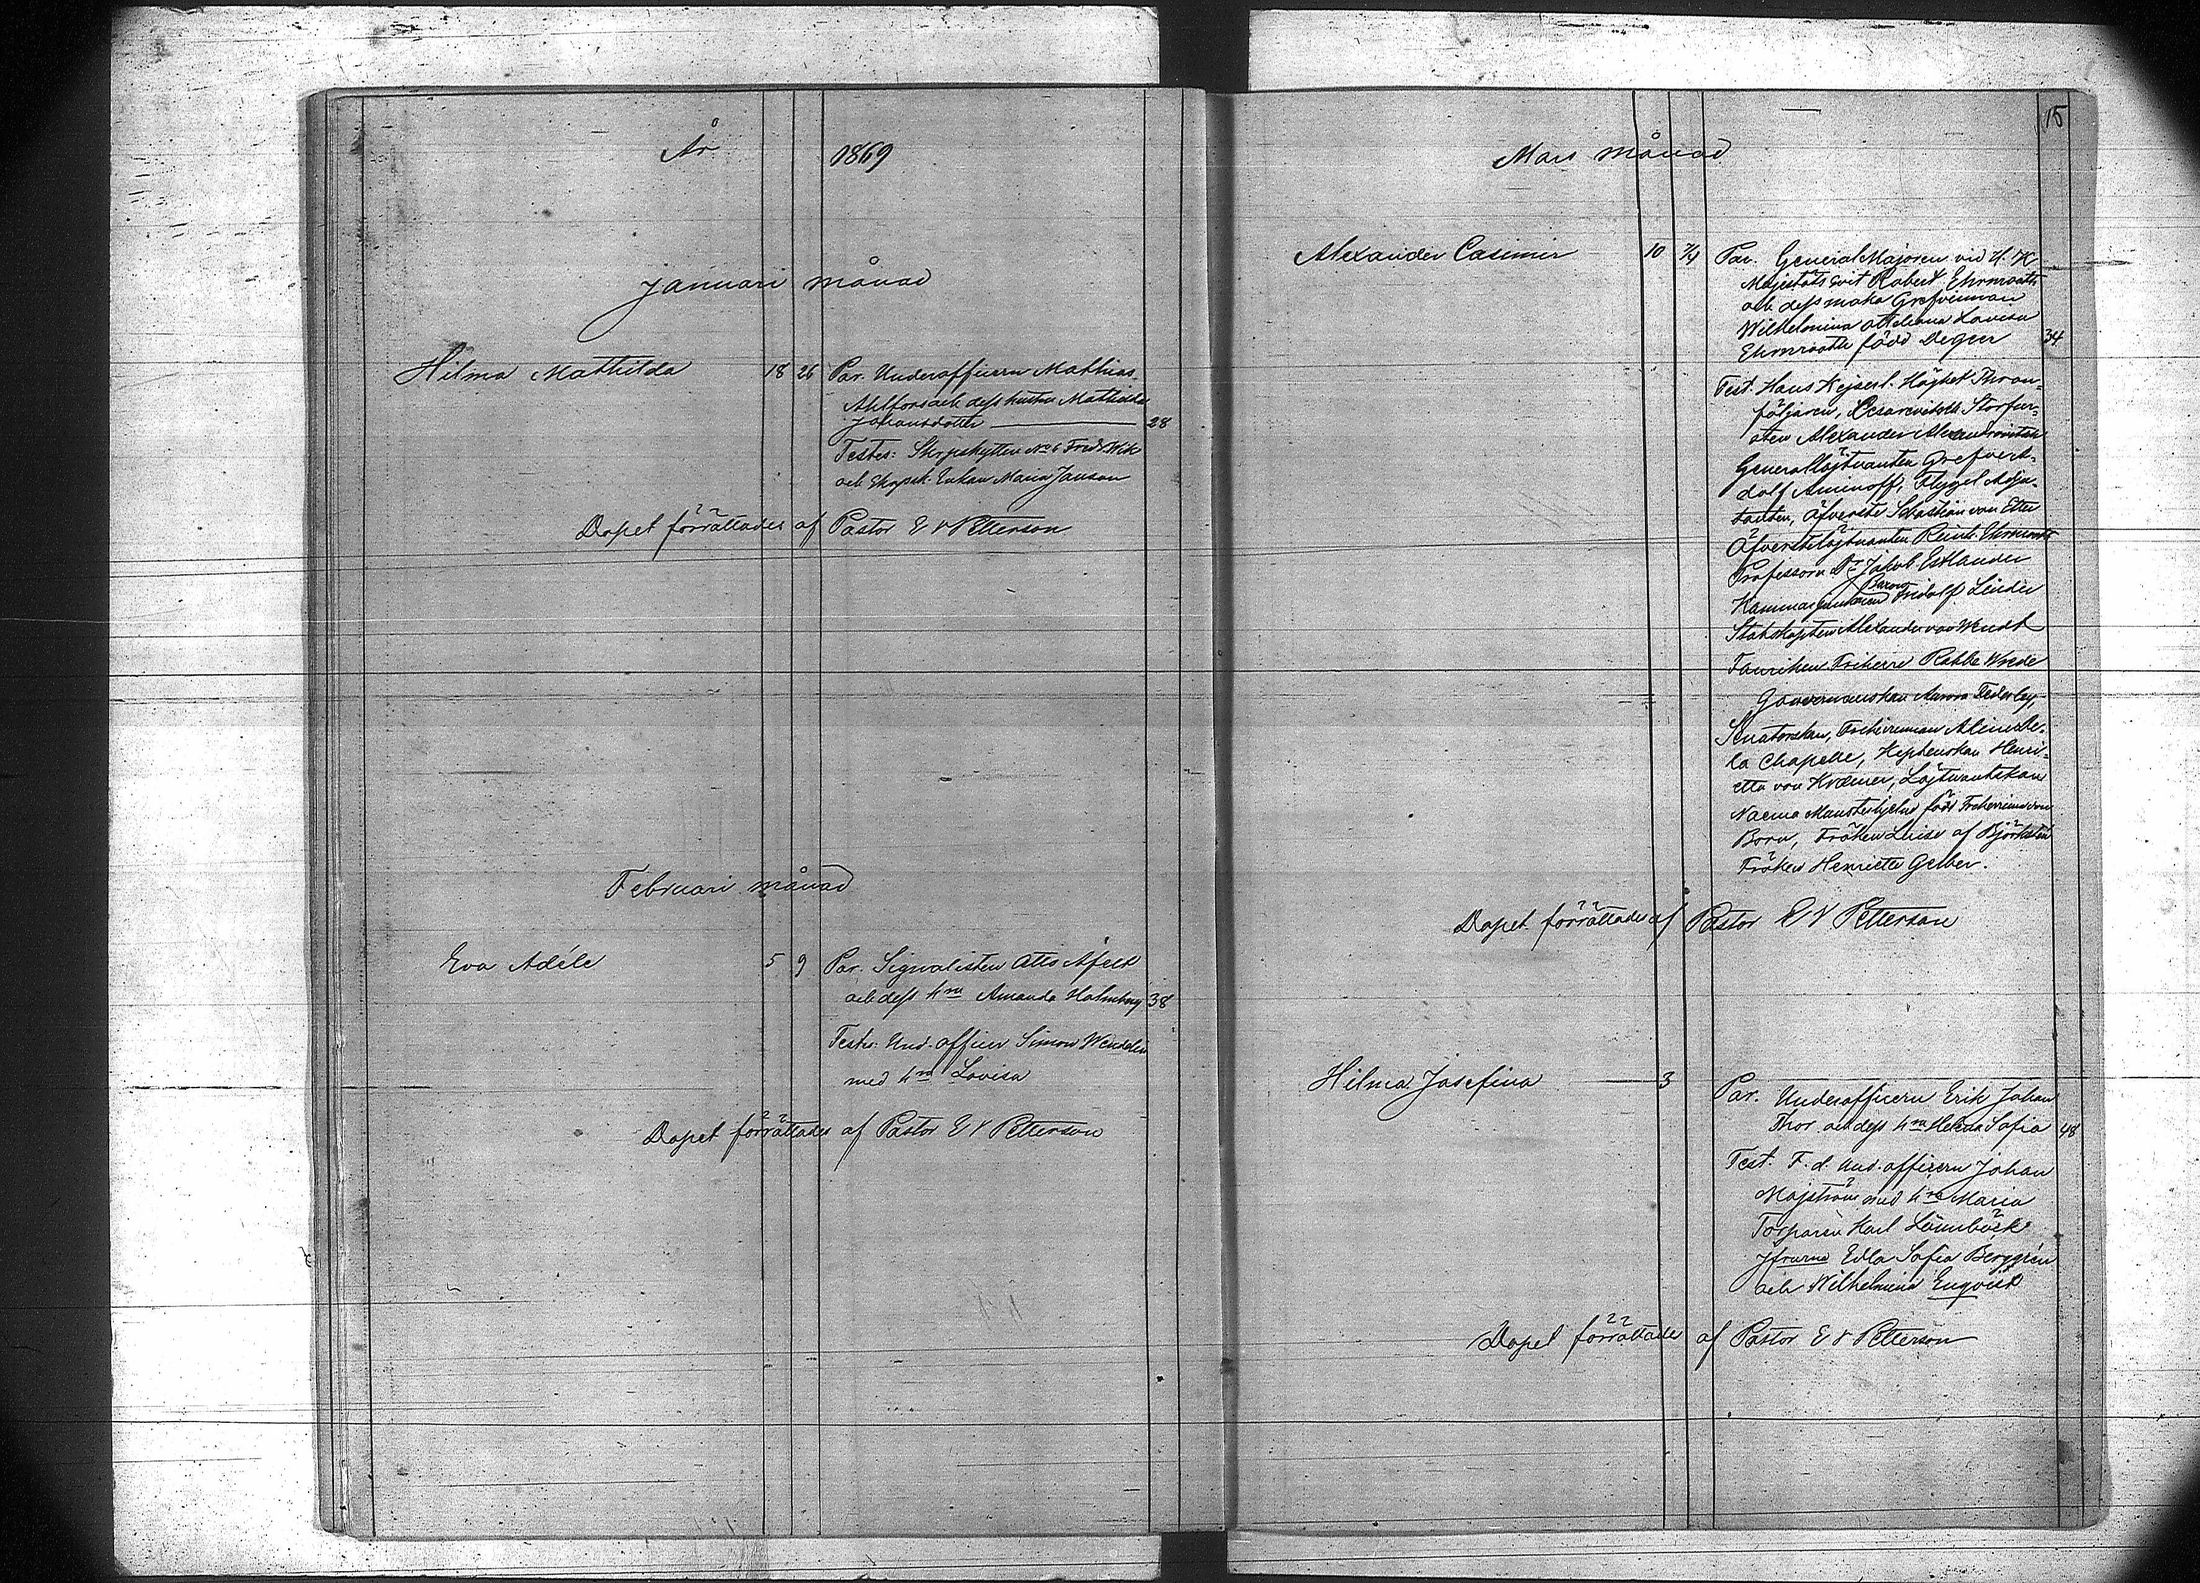 År 1869
Januari månad
Hilma Mathilda 18 26 Par. Underofficern Mathias
Ahlfors och dess hustru Mathilda
Johansdotter 28
Testes: Skrpskytten No 6 Fredr Wik
och Skrpsk. Enkan Maria Janson
Dopet förrättades af Pastor E V Petterson
Februari månad
Eva Adéle 5 9 Par. Signalisten Otto Afelt
och dess hru Amanda Holmberg 38
Testes: Und. officer Simon Wendelin
med hru Lovisa
Dopet förrättades af Pastor E V Petterson
15
Mars månad
Alexander Casimir 10 7/4 Par. General Majoren vid H. K
Majestäts svit Robert Ehrnrooth
och dess maka Grefvinnan
Wilhelmina Lovisa
Ehrnrooth född Degeer 34
Test. Hans Kejserl. Höghet Thron-
följaren, Cesarevitsch Storfur-
sten Alexander Alexandrovitsch
Generallöjtnanten Grefve
dolf Aminoff, Flygel Adju-
tanten, Öfverste Sebastian von Etter
Öfverstelöjtnanten Reinh. Ehrnrooth
Professorn Dr Jakob Estlander
Kammarjunkaren Baron Fridolf Linder
Stabskapten Alexander von Wendt
Fänriken Friherre Rabbe Wrede
Gouvernörskan Aurora Federley,
Senatorskan, Friherrinnan Aline De
la Chapelle, Kaptenskan Henri-
etta von Kræmer, Löjtnantskan
Naema Munsterhjelm född Friherrinna von
Born, Fröken Luise af Björksten
Fröken Henriette Gelber.
Dopet förrättades af Pastor E V Petterson
Hilma Josefina 3 Par. Underofficern Erik Johan
Thor och dess hru Helena Sofia 48
Test. F. d. Und. officern Johan
Majström med hru Maria
Torparen Karl Lönnbäck
Jfrurna Edla Sofia Berggrén
och Wilhelmina Enqvist
Dopet förrättades af Pastor E V Petterson